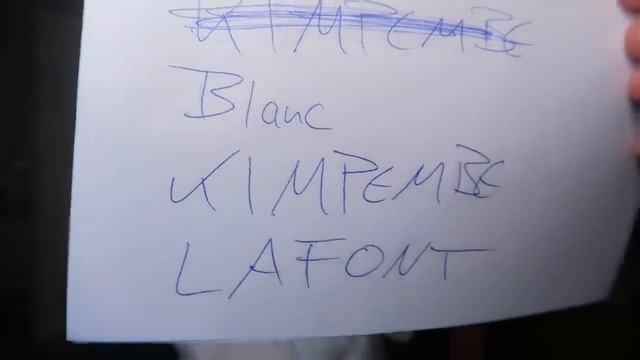 KIMPEMBE
Blanc
KIMPEMBE
LAFONT